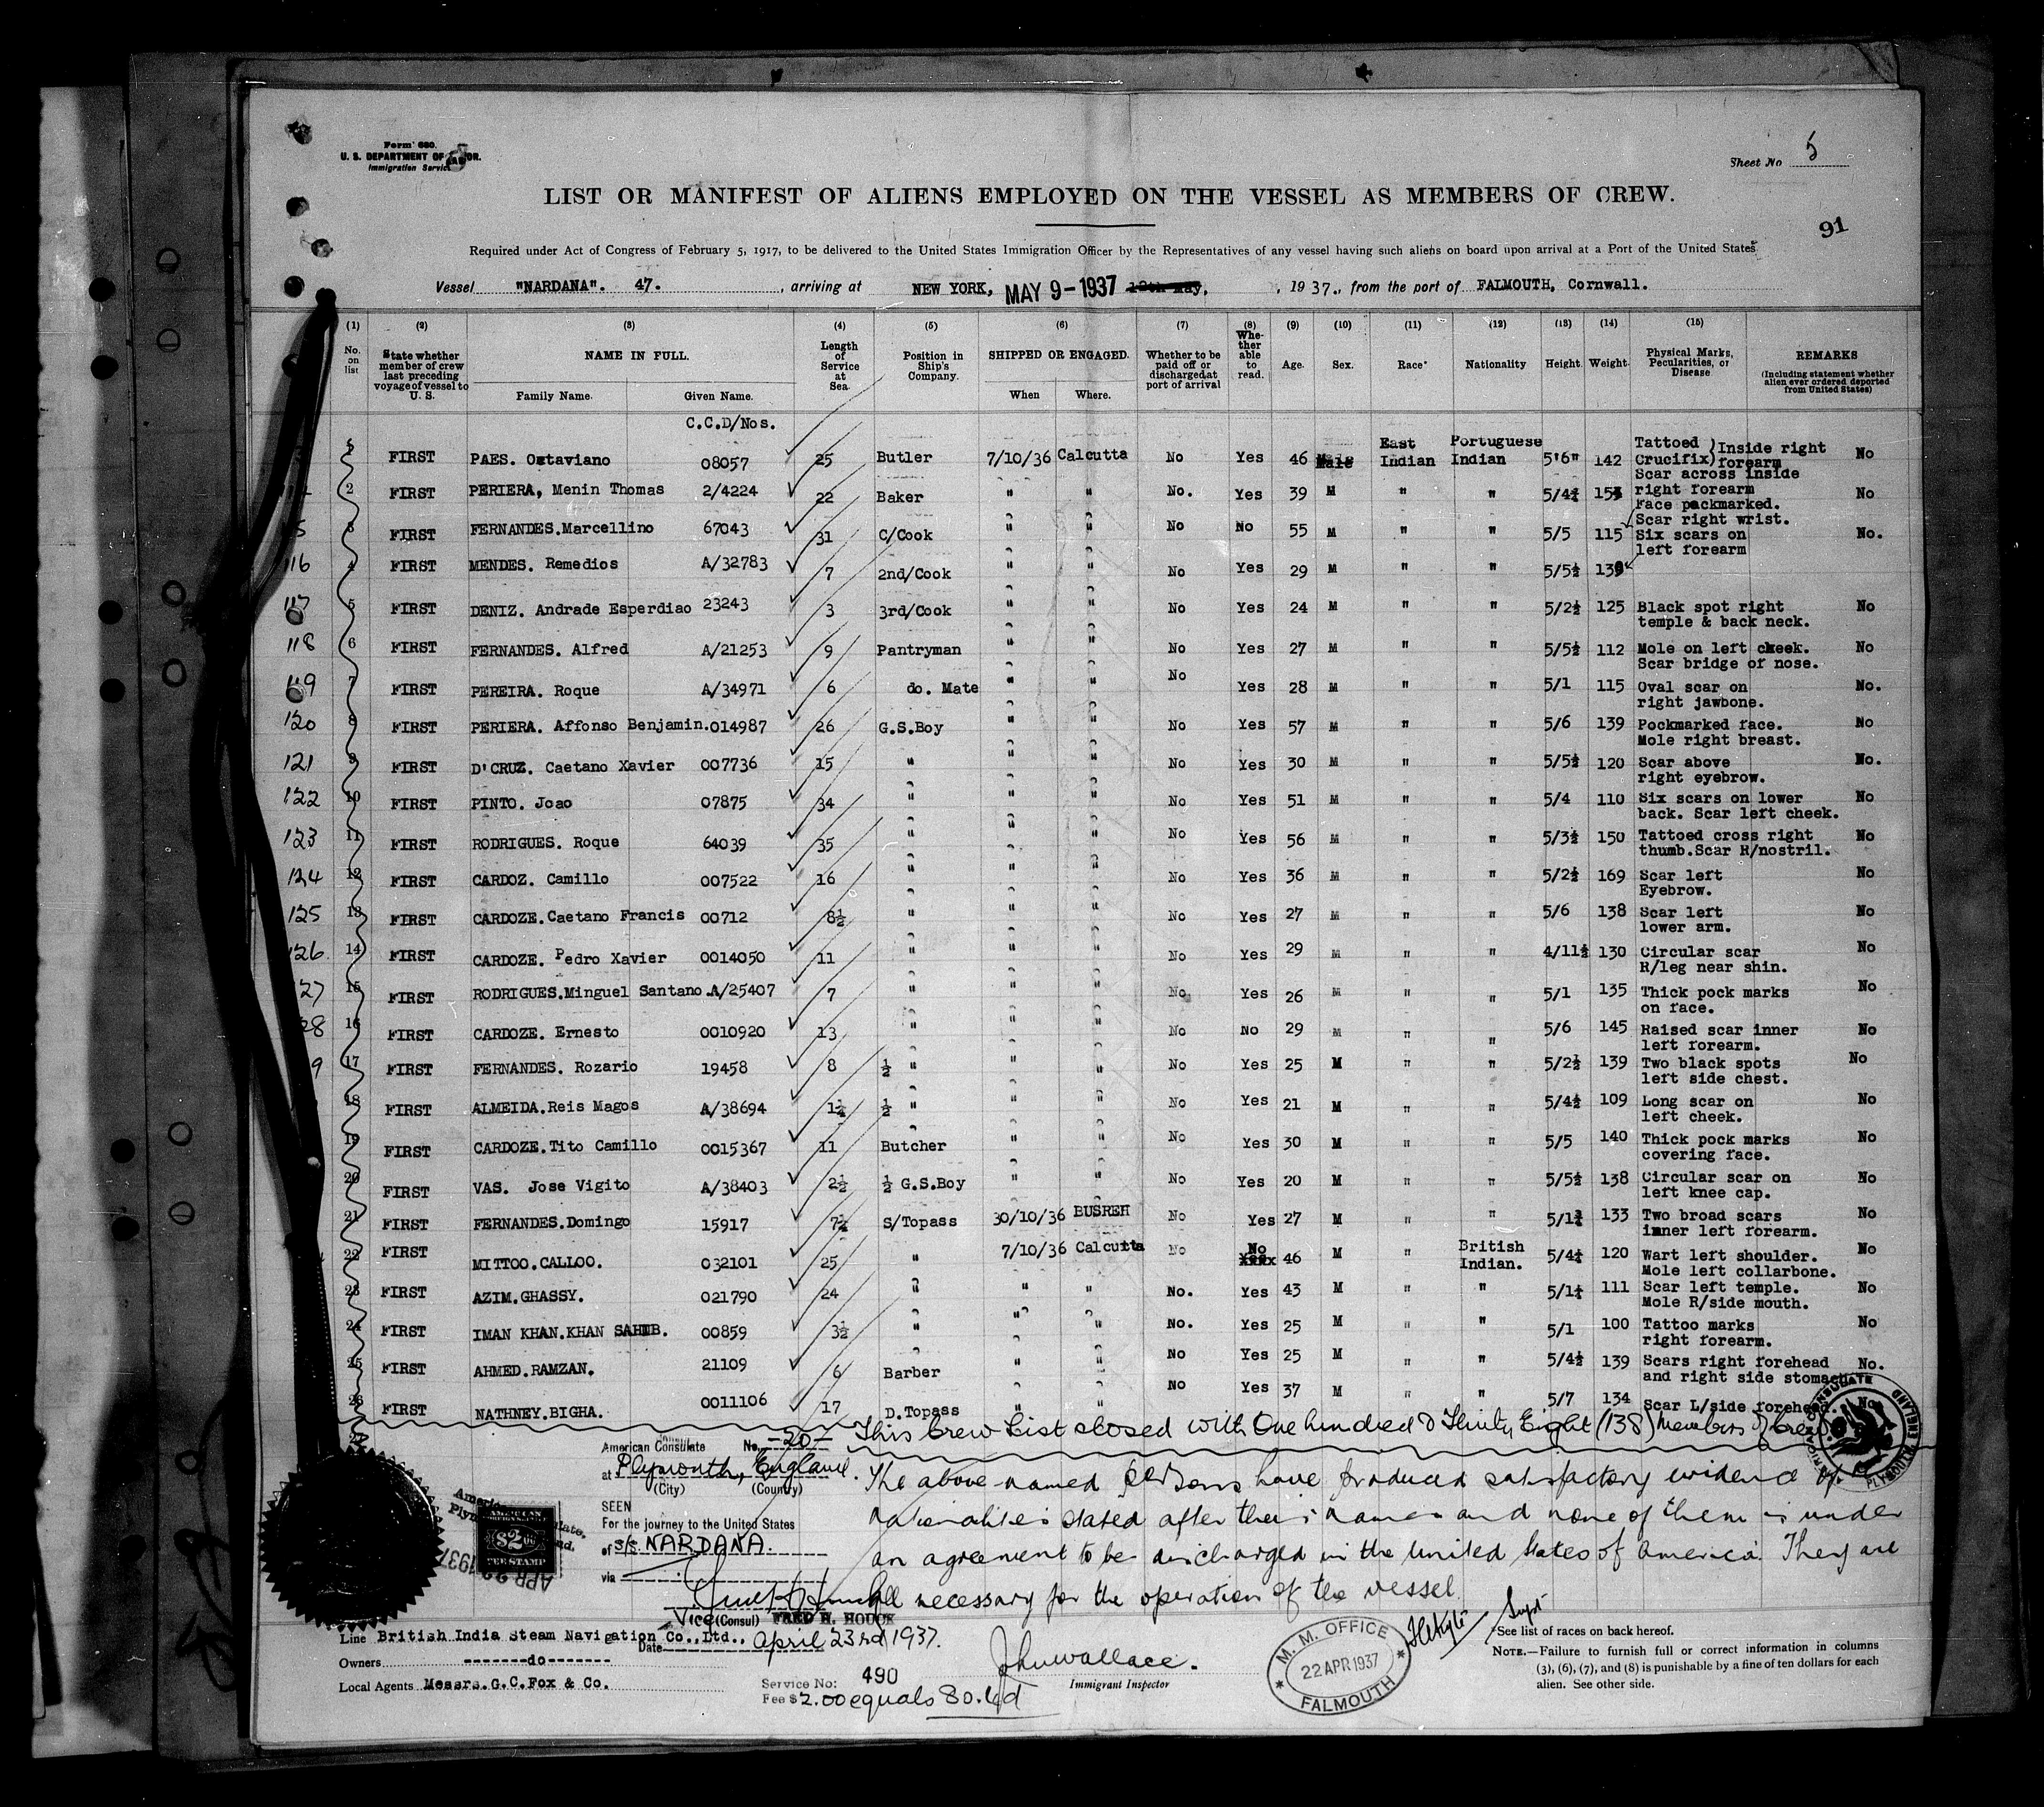 Form 680.
U. S. DEPARTMENT OF LABOR.
Immigration Service
Sheet No 5
LIST OR MANIFEST OF ALIENS EMPLOYED ON THE VESSEL AS MEMBERS OF CREW.
91
Required under Act of Congress of February 5, 1917, to be delivered to the United States Immigration Officer by the Representatives of any vessel having such aliens on board upon arrival at a Port of the United States
Vessel "NARDANA". 47. , arriving at NEW YORK, MAY 9-1937 12th May. , 1937., from the port of FALMOUTH, Cornwall.
(1) (2) (3) (4) (5) (6) (7) (8) (9) (10) (11) (12) (13) (14) (15)
No. on list State whether member of crew last preceding voyage of vessel to U. S. NAME IN FULL. Family Name. Given Name. Length of Service at Sea. Position in Ship's Company. SHIPPED OR ENGAGED. When Where. Whether to be paid off or discharged at port of arrival Whether able to read. Age. Sex. Race* Nationality Height. Weight. Physical Marks, Pecularities, or Disease REMARKS (Including statement whether alien ever ordered deported from United States)
C.C.D/Nos.
1 FIRST PAES. Octaviano 08057 25 Butler 7/10/36 Calcutta No Yes 46 Male East Indian Portuguese Indian 5'6" 142 Tattoed Crucifix) Inside right forearm No
2 FIRST PERIERA, Menin Thomas 2/4224 22 Baker " " No. Yes 39 M " " 5/4¾ 153 Scar across inside right forearm No
3 FIRST FERNANDES.Marcellino 67043 31 C/Cook " " No No 55 M " " 5/5 115 Face pockmarked. Scar right wrist. No.
116 4 FIRST MENDES. Remedios A/32783 7 2nd/Cook " " No Yes 29 M " " 5/5½ 139 Six scars on left forearm
117 5 FIRST DENIZ. Andrade Esperdiao 23243 3 3rd/Cook " " No Yes 24 M " " 5/2½ 125 Black spot right temple & back neck. No
118 6 FIRST FERNANDES. Alfred A/21253 9 Pantryman " " No Yes 27 M " " 5/5½ 112 Mole on left cheek. Scar bridge of nose. No
119 7 FIRST PEREIRA. Roque A/34971 6 do. Mate " " No Yes 28 M " " 5/1 115 Oval scar on right jawbone. No.
120 8 FIRST PERIERA. Affonso Benjamin. 014987 26 G.S.Boy " " No Yes 57 M " " 5/6 139 Pockmarked face. Mole right breast. No
121 9 FIRST D'CRUZ. Caetano Xavier 007736 15 " " " No Yes 30 M " " 5/5½ 120 Scar above right eyebrow. No.
122 10 FIRST PINTO. Joao 07875 34 " " " No Yes 51 M " " 5/4 110 Six scars on lower back. Scar left cheek. No
123 11 FIRST RODRIGUES. Roque 64039 35 " " " No Yes 56 M " " 5/3½ 150 Tattoed cross right thumb.Scar R/nostril. No
124 12 FIRST CARDOZ. Camillo 007522 16 " " " No Yes 36 M " " 5/2½ 169 Scar left Eyebrow. No
125 13 FIRST CARDOZE.Caetano Francis 00712 8½ " " " No Yes 27 M " " 5/6 138 Scar left lower arm. No
126 14 FIRST CARDOZE. Pedro Xavier 0014050 11 " " " No Yes 29 M " " 4/11½ 130 Circular scar R/leg near shin. No
127 15 FIRST RODRIGUES.Minguel Santano. A/25407 7 " " " No Yes 26 M " " 5/1 135 Thick pock marks on face. No
28 16 FIRST CARDOZE. Ernesto 0010920 13 " " " No No 29 M " " 5/6 145 Raised scar inner left forearm. No
9 17 FIRST FERNANDES. Rozario 19458 8 ½ " " " No Yes 25 M " " 5/2½ 139 Two black spots left side chest. No
18 FIRST ALMEIDA.Reis Magos A/38694 1¼ ½ " " " No Yes 21 M " " 5/4½ 109 Long scar on left cheek. No
19 FIRST CARDOZE.Tito Camillo 0015367 11 Butcher " " No Yes 30 M " " 5/5 140 Thick pock marks covering face. No
20 FIRST VAS. Jose Vigito A/38403 2½ ½ G.S.Boy " " No Yes 20 M " " 5/5½ 138 Circular scar on left knee cap. No
21 FIRST FERNANDES.Domingo 15917 7¼ S/Topass 30/10/36 BUSREH No Yes 27 M " " 5/1¾ 133 Two broad scars inner left forearm. No
22 FIRST MITTOO.CALLOO. 032101 25 " 7/10/36 Calcutta No No Yesx 46 M " British Indian. 5/4¼ 120 Wart left shoulder. Mole left collarbone. No
23 FIRST AZIM.GHASSY. 021790 24 " " " No. Yes 43 M " " 5/1¼ 111 Scar left temple. Mole R/side mouth. No
24 FIRST IMAN KHAN.KHAN SAHIB. 00859 3½ " " " No. Yes 25 M " " 5/1 100 Tattoo marks right forearm. No
25 FIRST AHMED.RAMZAN. 21109 6 Barber " " No Yes 25 M " " 5/4½ 139 Scars right forehead and right side stomach No.
26 FIRST NATHNEY.BIGHA. 0011106 17 D.Topass " " No Yes 37 M " " 5/7 134 Scar L/side forehead. No
This Crew List closed with One hundred & Thirty Eight (138) members of Crew.
American Consulate No. -20-
at Plymouth, England.
(City) (Country)
SEEN
For the journey to the United States
of s/s NARDANA.
via
The above named persons have produced satisfactory evidence of
nationalities stated after their names and none of them is under
an agreement to be discharged in the United States of America. They are
all necessary for the operation of the vessel.
AMERICAN
$2.00
FEE STAMP
APR 22 1937
AMERICAN CONSULATE
PLYMOUTH ENGLAND
Vice (Consul) FRED H. HOUCK
Line British India Steam Navigation Co.,Ltd., Date April 23rd 1937.
Owners -------do-------
Local Agents Messrs.G.C.Fox & Co.
Service No: 490
Fee $ 2.00 equals
John Wallace.
Immigrant Inspector
M. M. OFFICE
22 APR 1937
FALMOUTH
*See list of races on back hereof.
NOTE.—Failure to furnish full or correct information in columns
(3), (6), (7), and (8) is punishable by a fine of ten dollars for each
alien. See other side.